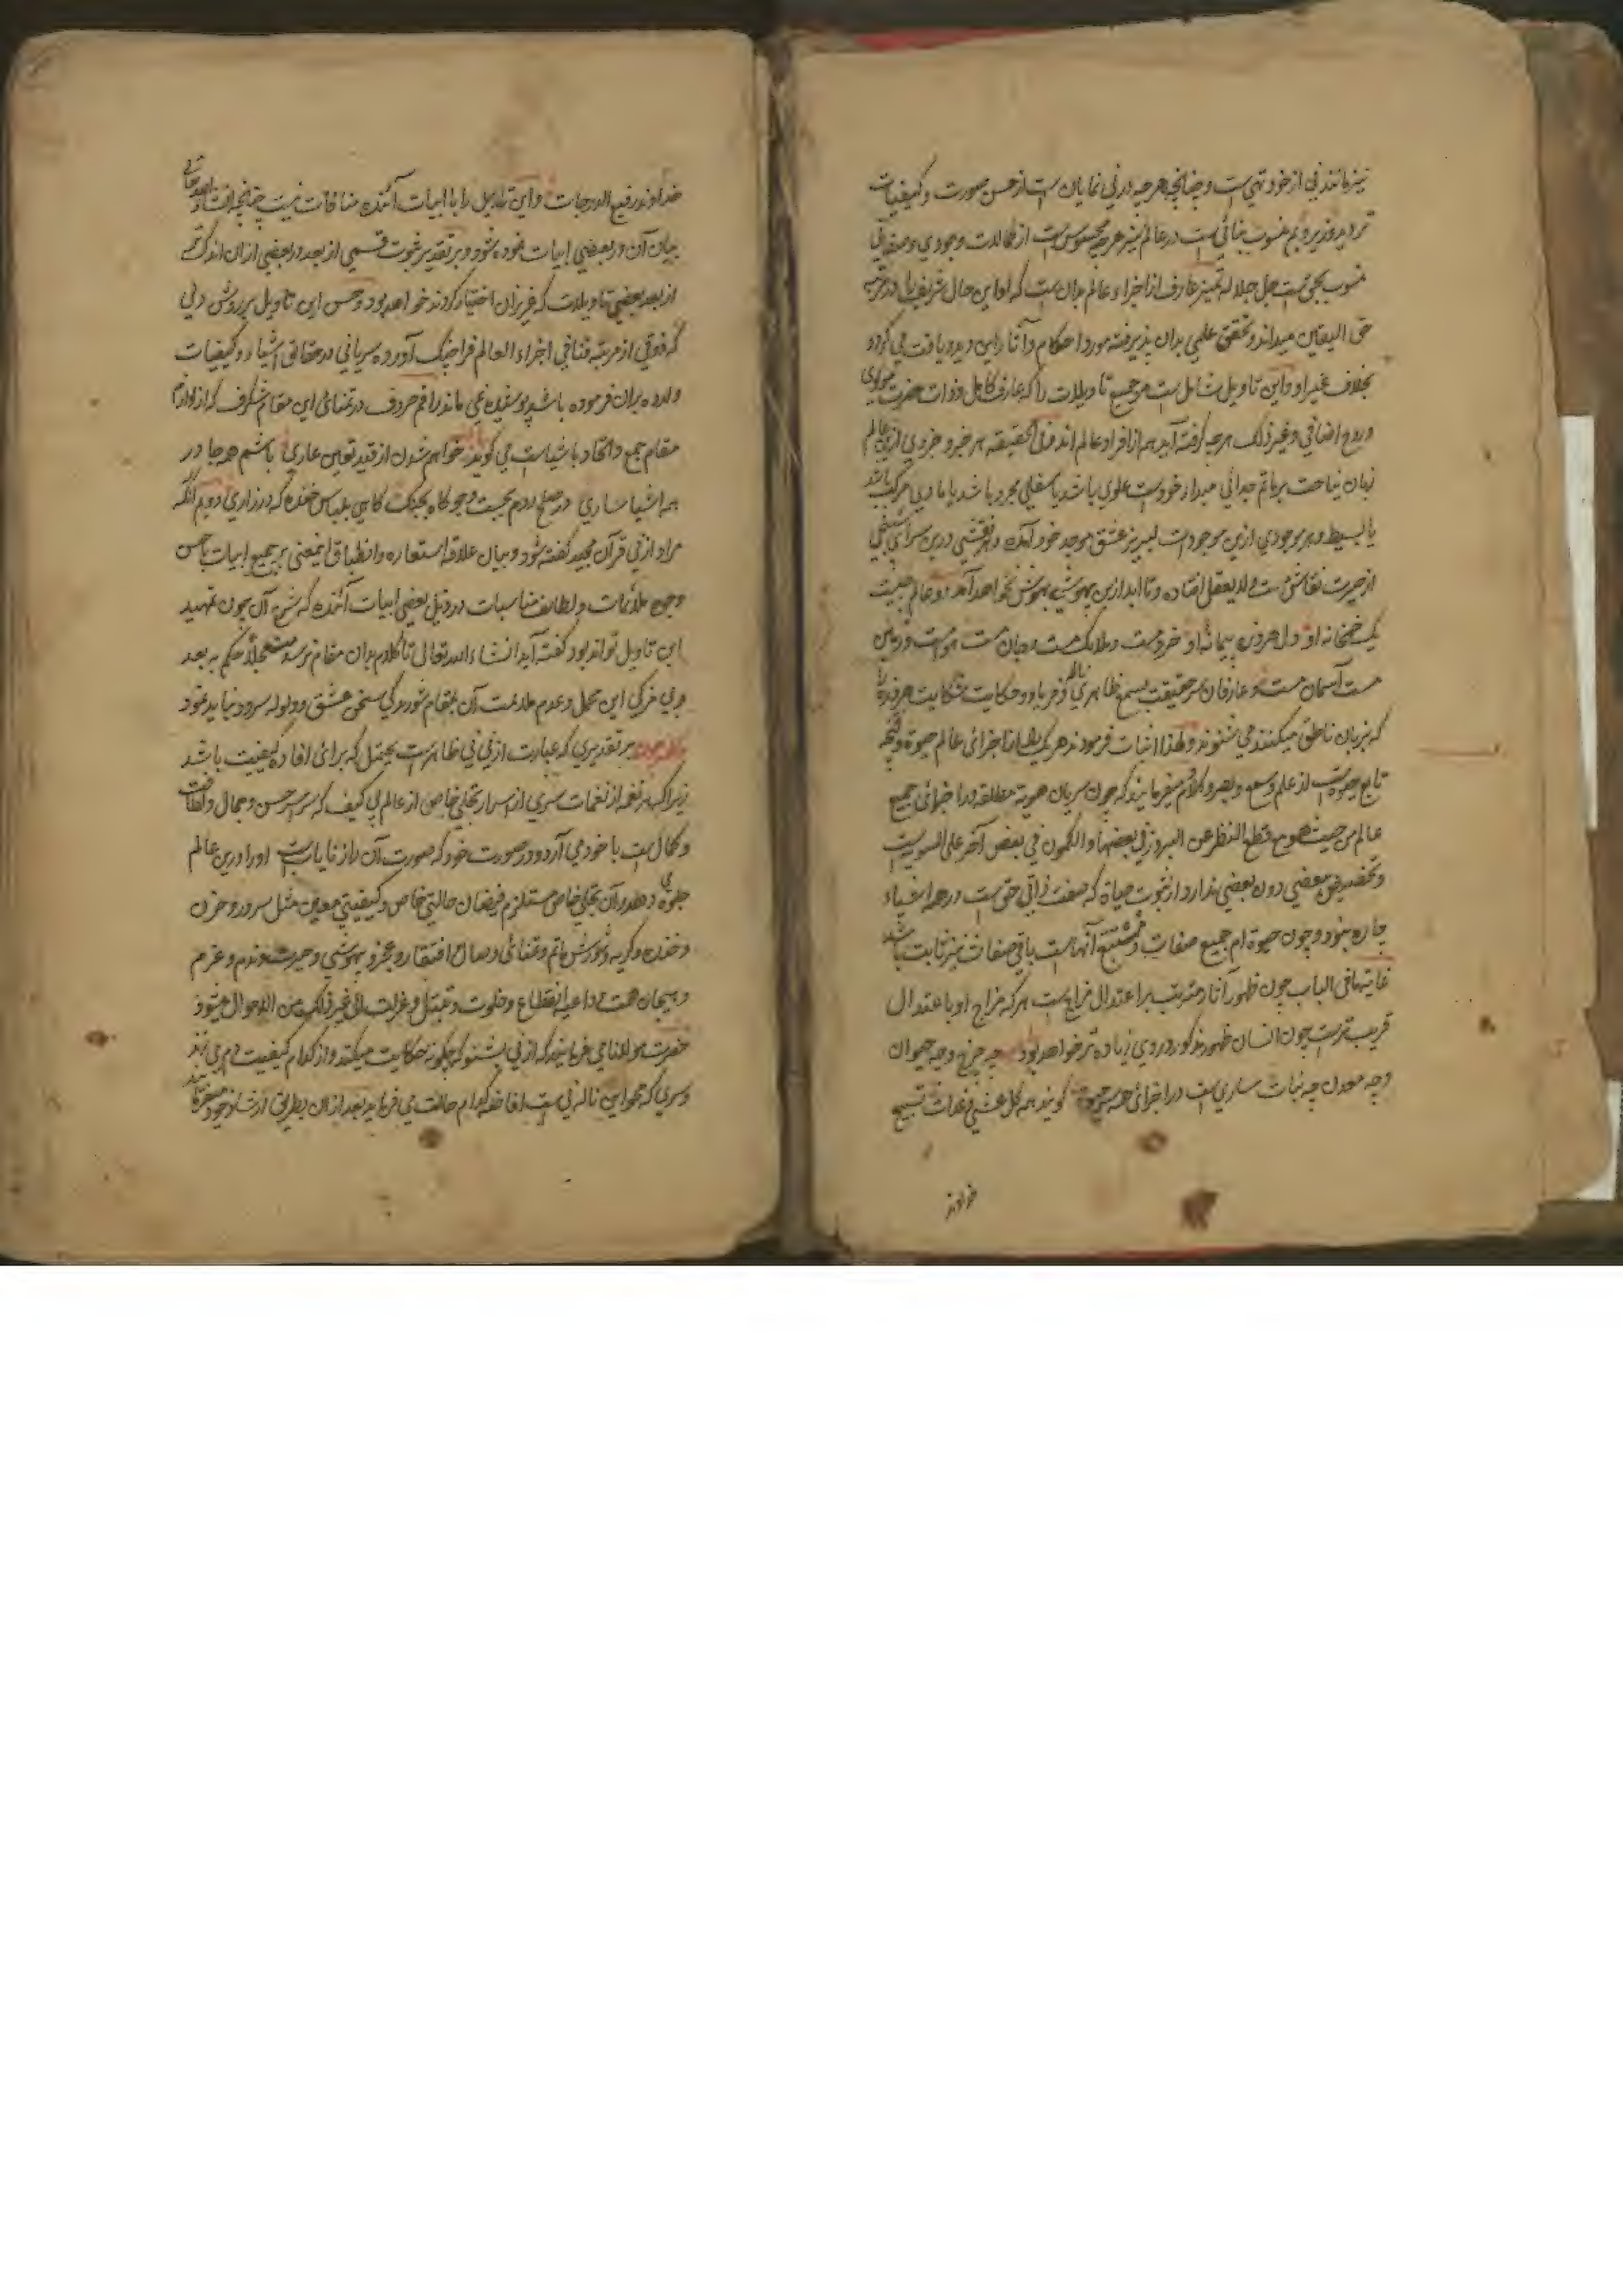 نیز مانند نی از خود تهی است و چنانچه هرچه در نی نمایان است از حسن صورت و کیفیات
منسوب بنائی است در عالم نیز هرچه محسوس است از کمالات وجودی و صفاتی
منسوب بحق است جل جلاله تمیز عارف از اجزاء عالم بدان است که او این حال
حق الیقین میداند و تحقق علمی بدان پذیرفته مورد احکام و آثار این دید و یافت می گردد
بخلاف غیر او و این تاویل شامل است مر جمیع تاویلات را که عارف کامل و ذات حضرت مولوی
و روح اضافی و غیر ذلک هرچه گفته آید هم از افراد عالم اند فی الحقیقه هر جز و جزوی از عالم
زبان نیاحت بر ماتم جدائی مبداء خود است علوی باشد یا سفلی مجرد باشد یا مادی مرکب باشد
یا بسیط و هر موجودی ازین موجودات لبریز عشق موجد خود آمده و هر نقشی درین سرای
از حیرت نقاش مست و لا یعقل افتاده و تا ابد ازین بیهوشی بهوش نخواهد آمد دو عالم چیست
یک خمخانه او دل هر ذره پیمانه او خرد مست و ملائک مست و جان مست هوا مست و زمین
مست آسمان مست و عارفان حقیقت بسمع ظاهری ناله و فریاد و حکایت شکایت هر ذره را
که بزبان ناطق میکنند می شنوند و لهذا اثبات فرمودند هر یک را از اجزائی عالم حیوة و آنچه
تابع حیوة است از علم و سمع و بصر و کلام میفرمایند که چون سریان هویة مطلقه در اجزائی جمیع
عالم من حیث هو مع قطع النظر عن البروز فی بعضها و الکمون فی بعض آخر علی السویت است
و تخصیص بعضی دون بعضی ندارد از ثبوت حیاة که صفت ذاتی حق است در همه اشیاء
چاره نبود و چون حیوة ام جمیع صفات و مستتبع آنهاست باقی صفات نیز ثابت باشد
غایة ما فی الباب چون ظهور آثار مترتب بر اعتدال مزاج است هر که مزاج او با عتدال
قریب تر است چون انسان ظهور مذکور در وی زیاده تر خواهد بود چه چرخ و چه حیوان
و چه معدن چه نبات ساری است در اجزائی همه حیوة گویند همه کل عشی و غدات تسبیح
خداوند
خداوند رفیع الدرجات و این تاویل را با ابیات آئنده منافات نیست چنانچه انشاء الله تعالی
بیان آن در بعضی ابیات نموده شود و بر تقدیر ثبوت قسمی از بعد در بعضی ازان اندک تر
از بعد بعضی تاویلات که عزیزان اختیار کردند خواهد بود و حسن این تاویل بر روش دلی
که فوقی از مرتبه فنا فی اجزاء العالم فرا چنگ آورده سریانی در حقائق اشیاء و کیفیات
وارده بران فرموده باشد پوشیده نمی ماند راقم حروف در تمنائی این مقام شگرف که از لوازم
مقام جمع و اتحاد با اشیاست می گوید خواهم شدن از قید تعین عاری باشم همه جا در
همه اشیا ساری در صلح روم بجست و جو گاه بجنگ گاهی بلباس خنده گه در زاری دویم آنکه
مراد از نی قرآن مجید گفته شود و بیان علاقه استعاره و انطباق این معنی بر جمیع ابیات باحسن
وجوه ملائمات و لطائف مناسبات در ذیل بعضی ابیات آئنده که شرح آن چون تمهید
این تاویل تواند بود گفته آید انشاء الله تعالی تا کلام بدان مقام نرسد مستعجلاً حکم به بعد
و بی مزگی این محمل و عدم ملائمت آن بمقام شوریدگی سخن عشق و ولوله سرود نباید نمود
بر تقدیری که عبارت از نی نی ظاهر است یحتمل که برائی افاده کیفیت باشد
زیرا که هر نغمه از نغمات سری از اسرار تجلی خاص از عالم بی کیف که سراسر حسن و جمال و لطافت
و کمال است با خود می آرد و در صورت خود که صورت آن راز نایاب است او را درین عالم
جلوه می دهد و آن تجلی خاص مستلزم فیضان حالتی خاص و کیفیتی معین مثل سرور و حزن
و خنده و گریه و شورش ماتم و تمنائی وصال افتقار و عجز و بیهوشی و حیرت و ندم و عزم
و هیجان همت و داعیه انقطاع و خلوت و تبتل و عزلت الی غیر ذلک من الاحوال میشود
حضرت مولانا می فرمایند که از نی بشنو که چگونه حکایت میکند و از کدام کیفیت دم می زند
و سری که همراه این ناله نی است افاضه کدام حالت می فرماید بعد ازان بطریق